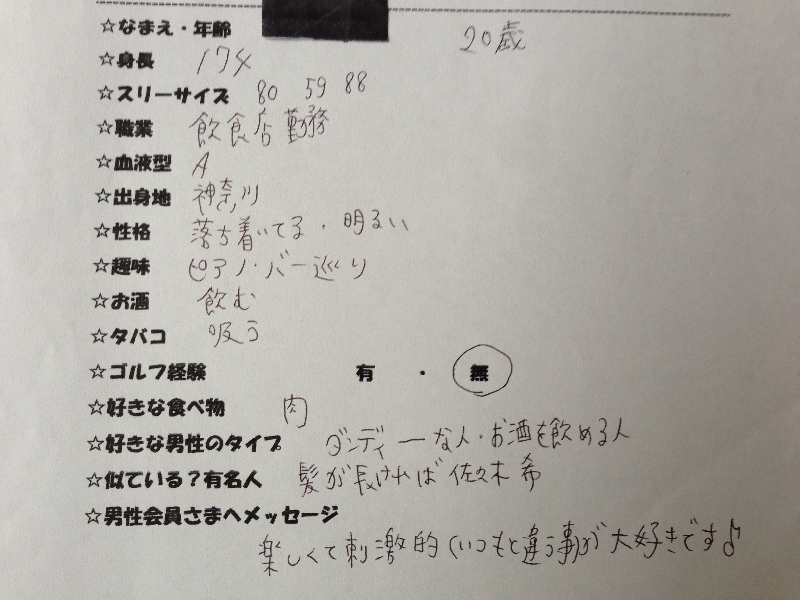 ☆なまえ・年齢 20歳
☆身長 174
☆スリーサイズ 80 59 88
☆職業 飲食店勤務
☆血液型 A
☆出身地 神奈川
☆性格 落ち着いてる・明るい
☆趣味 ピアノ・バー巡り
☆お酒 飲む
☆タバコ 吸う
☆ゴルフ経験 有 ・ 無
☆好きな食べ物 肉
☆好きな男性のタイプ ダンディーな人・お酒を飲める人
☆似ている?有名人 髪が長ければ佐々木希
☆男性会員さまへメッセージ
楽しくて刺激的(いつもと違う事)が大好きです♪